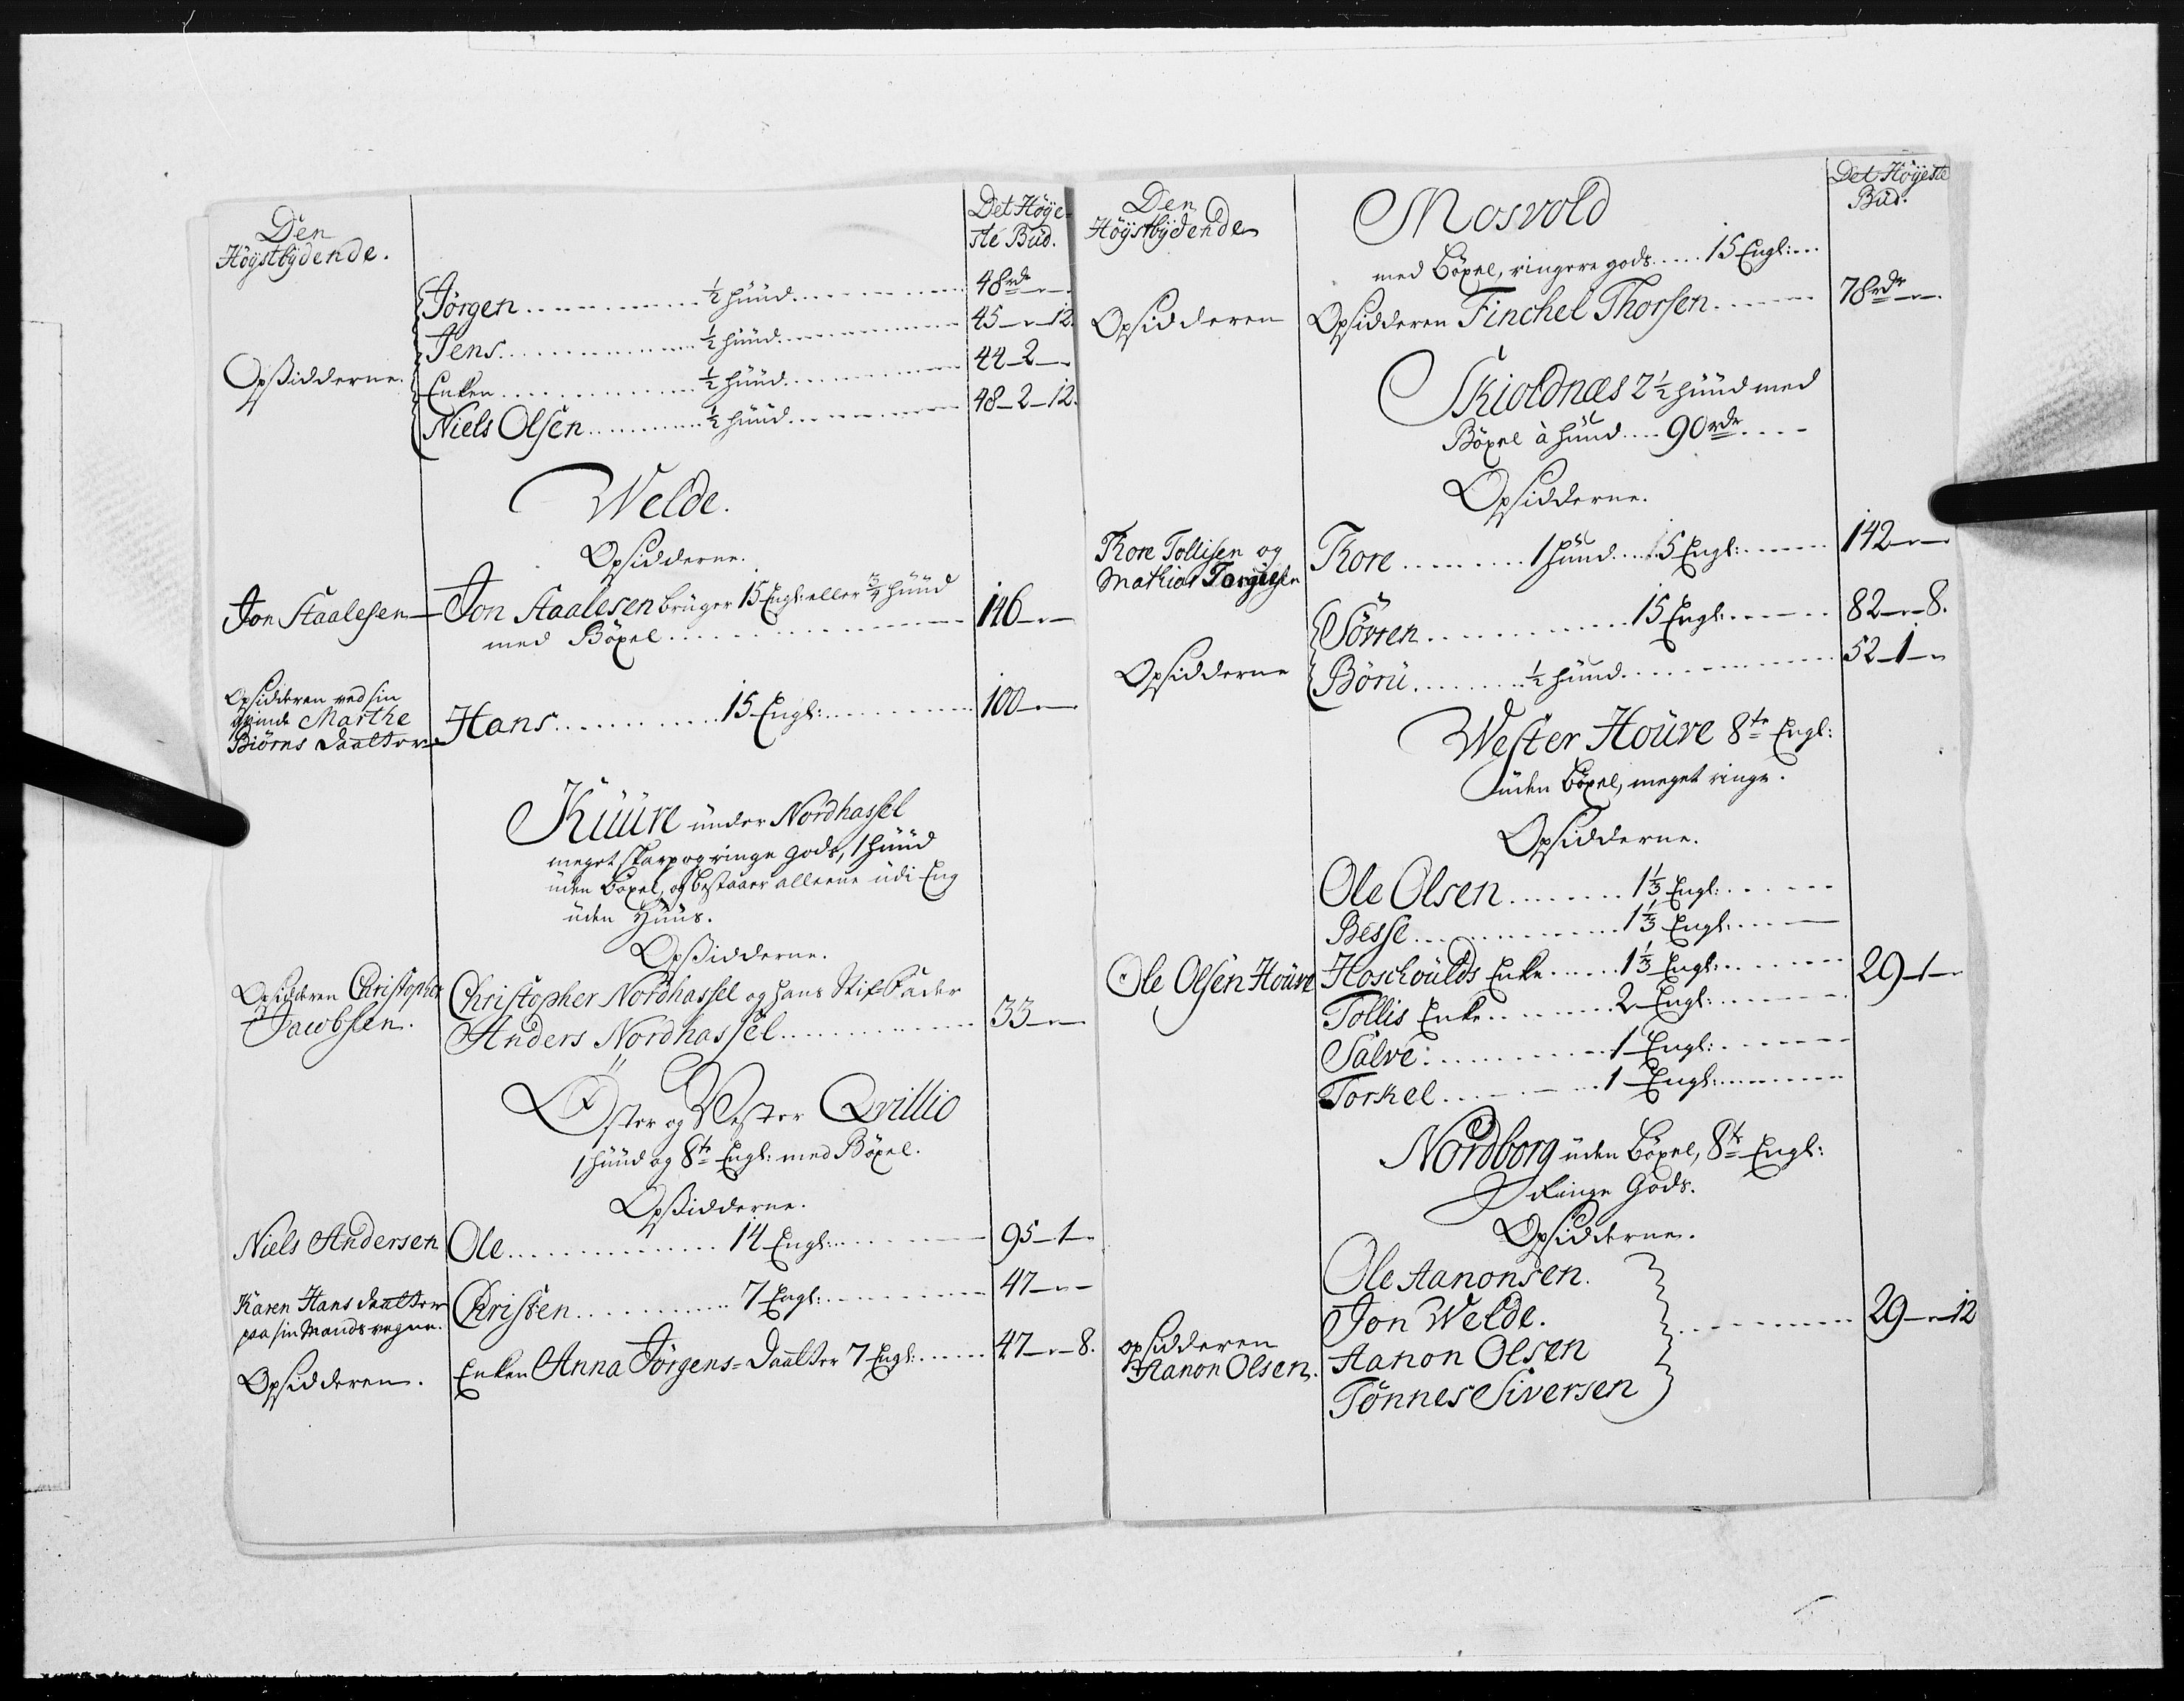 Den
Høÿstbÿdende.
Det Høÿe-
ste Bud.
Jørgen ............ ½ huud ............ 48 rdr — „ —
Jens ............ ½ huud ............ 45 — „ — 12.
Opsidderne.
Enken ............ ½ huud ............ 44 — 2 —
Niels Olsen ............ ½ huud ............ 48 — 2 — 12.
Welde.
Opsidderne.
Jon Staalesen — Jon Staalesen bruger 15 Engl: eller ¾ huud
med Böxel ............ 146 — „ —
Opsidderen ved sin
qvinde Marthe
Biörns daatter
Hans ............ 15 Engl: ............ 100 — „ —
Kuure under Nordhassel
meget skarp og ringe Gods, 1 huud
uden Böxel, og bestaaer alleene udi Eng
uden Huus.
Opsidderne.
Opsidderen Christopher
Jacobsen.
Christopher Nordhassel og hans Stif-Fader
Anders Nordhassel ............ 33 — „ —
Öster og Vester Qvillio
1 huud og 8te Engl: med Böxel.
Opsidderne.
Niels Andersen Ole ............ 14 Engl: ............ 95 — 1 —
Karen Hans daatter
paa sin Mands vegne.
Christen ............ 7 Engl: ............ 47 — „ —
Opsidderen. Enken Anna Jørgens-Daatter 7 Engl: ...... 47 — „ — 8.
Den
Høÿstbÿdende
Det Høÿeste
Bud.
Mosvold
med Böxel, ringere gods ..... 15 Engl: ...
Opsidderen Opsidderen Finchel Thorsen ............ 78 rdr — „ —
Skioldnæs 2½ huud med
Böxel à huud .... 90 rdr ....
Opsidderne.
Thore Tollisen og
Mathias Torgiesen
Thore ......... 1 huud .... 15 Engl: ......... 142 — „ —
Sövren ............ 15 Engl: ......... 82 — „ — 8.
Opsidderne
Börü ......... ½ huud ............ 52 — 1 — „
Wester Houve 8te Engl:
uden Böxel, meget ringe.
Opsidderne.
Ole Olsen ......... 1⅓ Engl: .........
Besse ............ 1⅓ Engl: .........
Ole Olsen Houve Hoschoulds Enke ...... 1⅓ Engl: ......... 29 — 1 —
Tollis Enke ......... 2 Engl: .........
Salve: ............ 1 Engl: .........
Torkel ......... 1 Engl: .........
Nordborg uden Böxel, 8te Engl:
Ringe Gods.
Opsidderne.
Ole Aanonsen.
Jon Welde.
............ 29 — „ — 12
opsidderen
Aanon Olsen.
Aanon Olsen
Tönnes Siversen